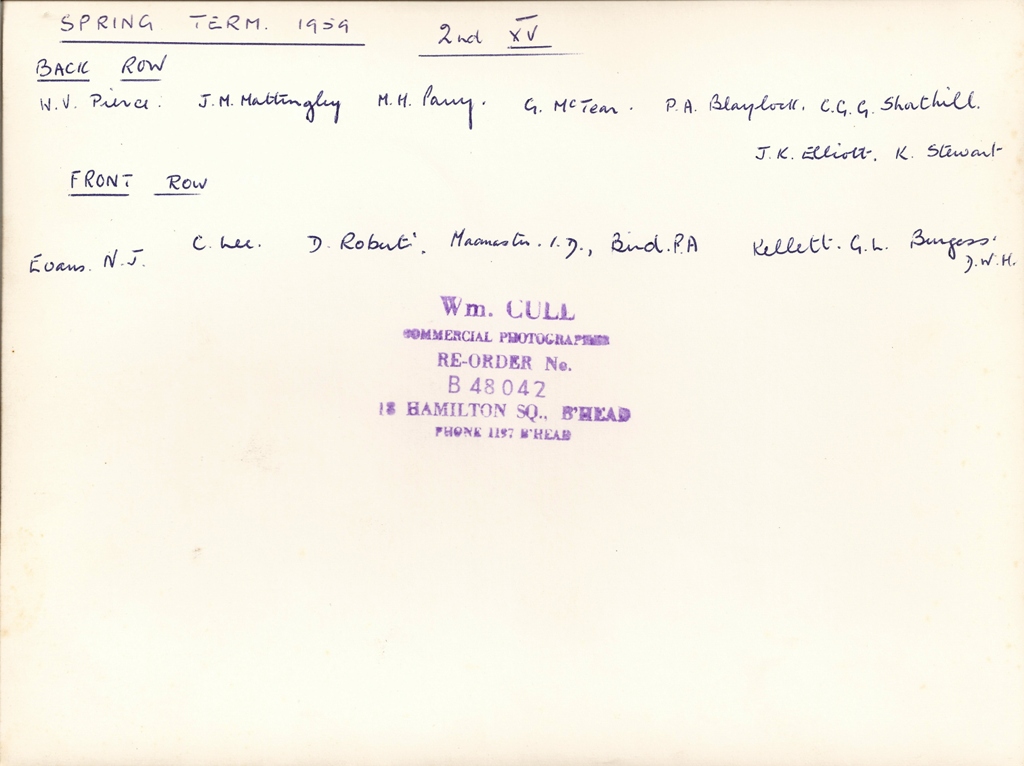 SPRING TERM. 1959 2nd XV
BACK ROW
W.V. Pierce. J.M. Mattingley M.H. Parry. G. McTear. P.A. Blaylock. C.G.G. Shorthill.
J.K. Elliott. K. Stewart
FRONT ROW
Evans. N.J. C. Lee. D. Roberts. I.D., Bird. P.A Kellett. G.L. Burgess.
D.W.H.
Wm. CULL
COMMERCIAL PHOTOGRAPHER
RE-ORDER No.
B 48042
18 HAMILTON SQ., B'HEAD
PHONE 1197 B'HEAD